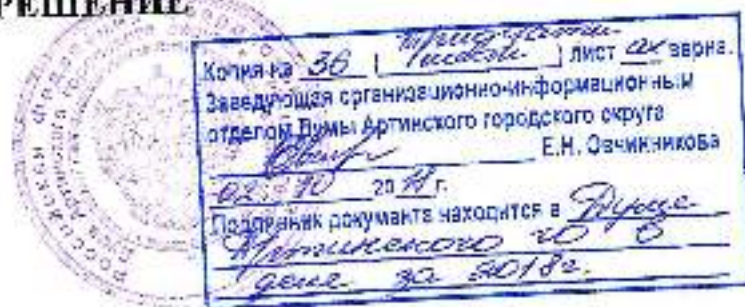 РЕШЕНИЕ
Копия на 36 (тридцати шести) лист ах верна.
Заведующая организационно-информационным
отделом Думы Артинского городского округа
Е.Н. Овчинникова
02.10 2018 г.
Подлинник документа находится в Думе
Артинского ГО в
деле за 2018г.
РОССИЙСКАЯ ФЕДЕРАЦИЯ